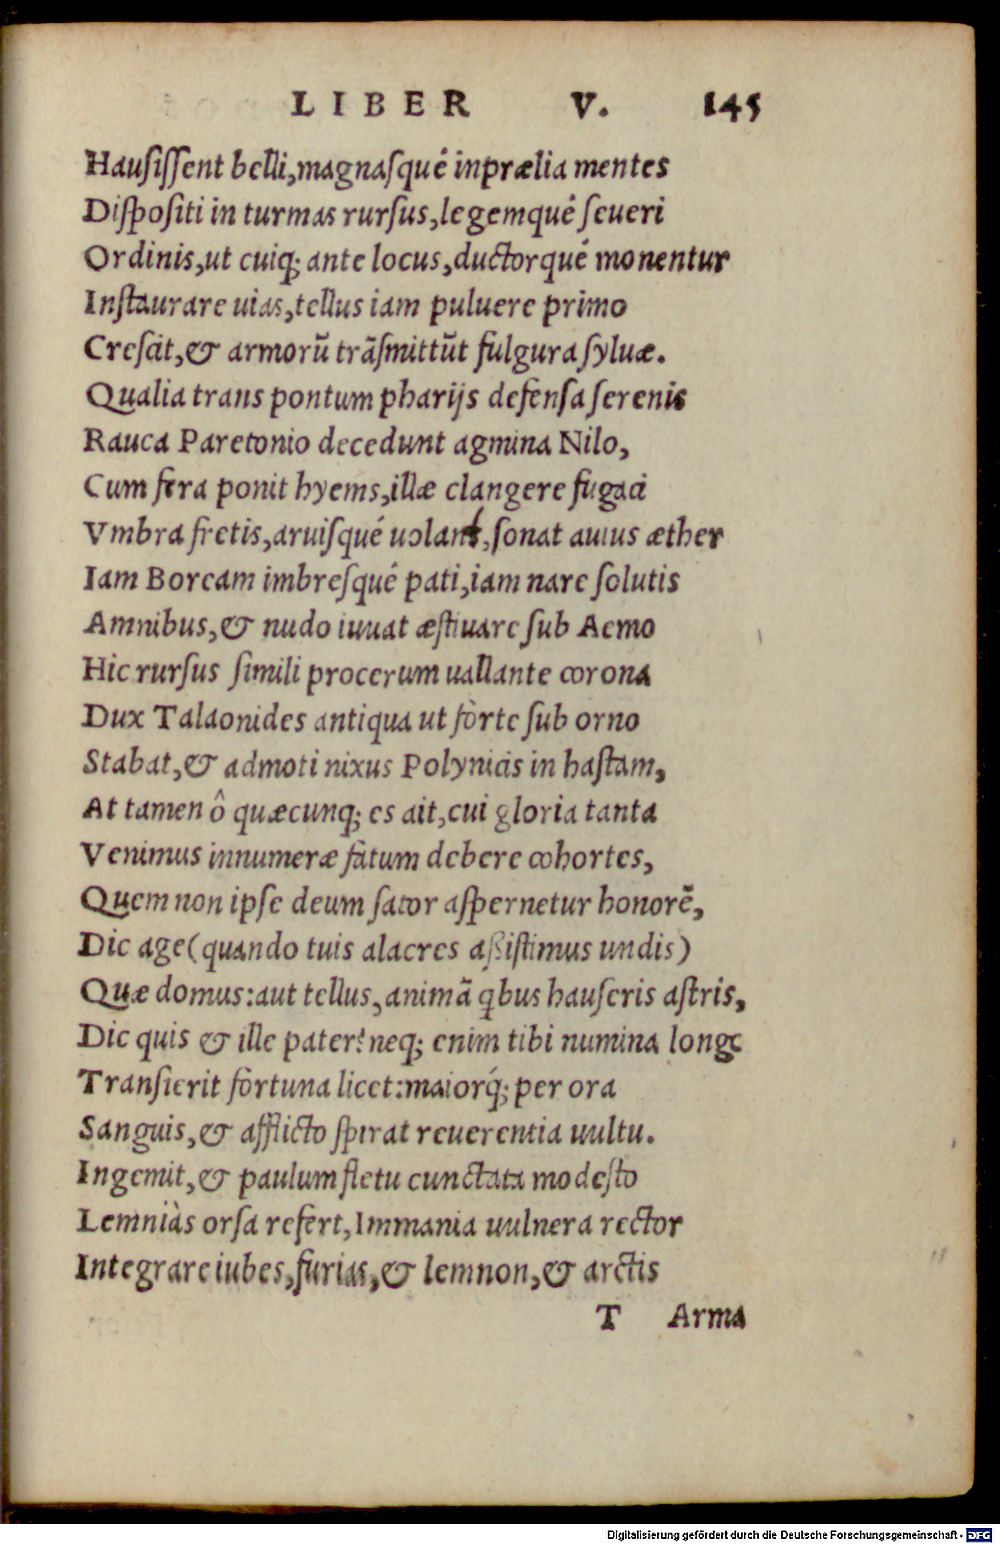 LIBER V. 145
Hausissent belli, magnasquê in prælia mentes
Dispositi in turmas rursus, legemquê seueri
Ordinis, ut cuiq; ante locus, ductorqué monentur
Instaurare uias, tellus iam puluere primo
Crescit, & armorũ trãsmittũt fulgura syluæ.
Qualia trans pontum pharijs defensa serenis
Rauca Paretonio decedunt agmina Nilo,
Cum fera ponit hyems, illæ clangere fugaci
Vmbra fretis, aruisqué uolant, sonat auius æther
Iam Boream imbresquê pati, iam nare solutis
Amnibus, & nudo iuuat æstiuare sub Aemo
Hic rursus simili procerum uallante corona
Dux Talaonides antiqua ut fòrte sub orno
Stabat, & admoti nixus Polynicis in hastam,
At tamen ô quæcunq; es ait, cui gloria tanta
Venimus innumeræ fatum debere cohortes,
Quem non ipse deum sator aspernetur honorẽ,
Dic age (quando tuis alacres aßistimus undis)
Quæ domus: aut tellus, animã qbus hauseris astris,
Dic quis & ille pater? neq; enim tibi numina longe
Transierit fòrtuna licet: maiorq́; per ora
Sanguis, & afflicto spirat reuerentia uultu.
Ingemit, & paulum fletu cunctata modesto
Lemniàs orsa refert, Immania uulnera rector
Integrare iubes, furias, & lemnon, & arctis
T Arma
Digitalisierung gefördert durch die Deutsche Forschungsgemeinschaft - DFG